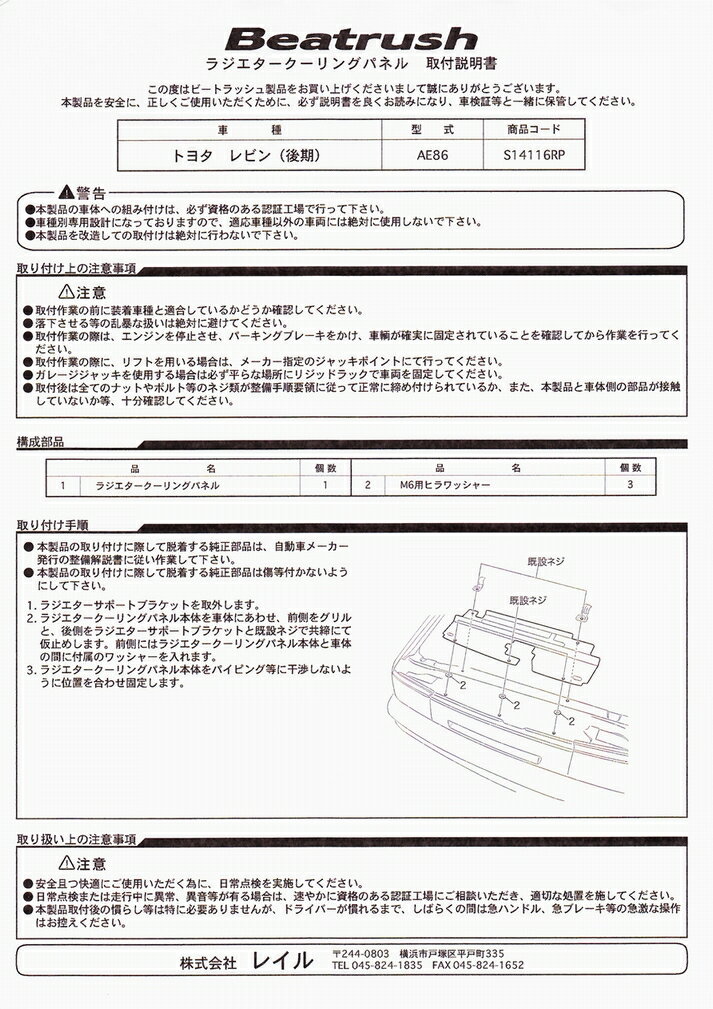 Beatrush
ラジエタークーリングパネル 取付説明書
この度はビートラッシュ製品をお買い上げくださいまして誠にありがとうございます。
本製品を安全に、正しくご使用いただくために、必ず説明書を良くお読みになり、車検証等と一緒に保管してください。
車 種 型 式 商品コード
トヨタ レビン（後期） AE86 S14116RP
⚠警告
●本製品の車体への組み付けは、必ず資格のある認証工場で行って下さい。
●車種別専用設計になっておりますので、適応車種以外の車両には絶対に使用しないで下さい。
●本製品を改造しての取付けは絶対に行わないで下さい。
取り付け上の注意事項
⚠注意
●取付作業の前に装着車種と適合しているかどうか確認してください。
●落下させる等の乱暴な扱いは絶対に避けてください。
●取付作業の際は、エンジンを停止させ、パーキングブレーキをかけ、車輌が確実に固定されていることを確認してから作業を行ってく
ださい。
●取付作業の際に、リフトを用いる場合は、メーカー指定のジャッキポイントにて行ってください。
●ガレージジャッキを使用する場合は必ず平らな場所にリジッドラックで車両を固定してください。
●取付後は全てのナットやボルト等のネジ類が整備手順要領に従って正常に締め付けられているか、また、本製品と車体側の部品が接触
していないか等、十分確認してください。
構成部品
品 名 個 数 品 名 個 数
1 ラジエタークーリングパネル 1 2 M6用ヒラワッシャー 3
取り付け手順
●本製品の取り付けに際して脱着する純正部品は、自動車メーカー
発行の整備解説書に従い作業して下さい。
●本製品の取り付けに際して脱着する純正部品は傷等付かないよう
にして下さい。
1. ラジエターサポートブラケットを取外します。
2. ラジエタークーリングパネル本体を車体にあわせ、前側をグリル
と、後側をラジエターサポートブラケットと既設ネジで共締にて
仮止めします。前側にはラジエタークーリングパネル本体と車体
の間に付属のワッシャーを入れます。
3. ラジエタークーリングパネル本体をパイピング等に干渉しないよ
うに位置を合わせ固定します。
既設ネジ
既設ネジ
2
2
2
取り扱い上の注意事項
⚠注意
●安全且つ快適にご使用いただく為に、日常点検を実施してください。
●日常点検または走行中に異常、異音等が有る場合は、速やかに資格のある認証工場にご相談いただき、適切な処置を施してください。
●本製品取付後の慣らし等は特に必要ありませんが、ドライバーが慣れるまで、しばらくの間は急ハンドル、急ブレーキ等の急激な操作
はお控えください。
株式会社 レイル
〒244-0803 横浜市戸塚区平戸町335
TEL 045-824-1835 FAX 045-824-1652